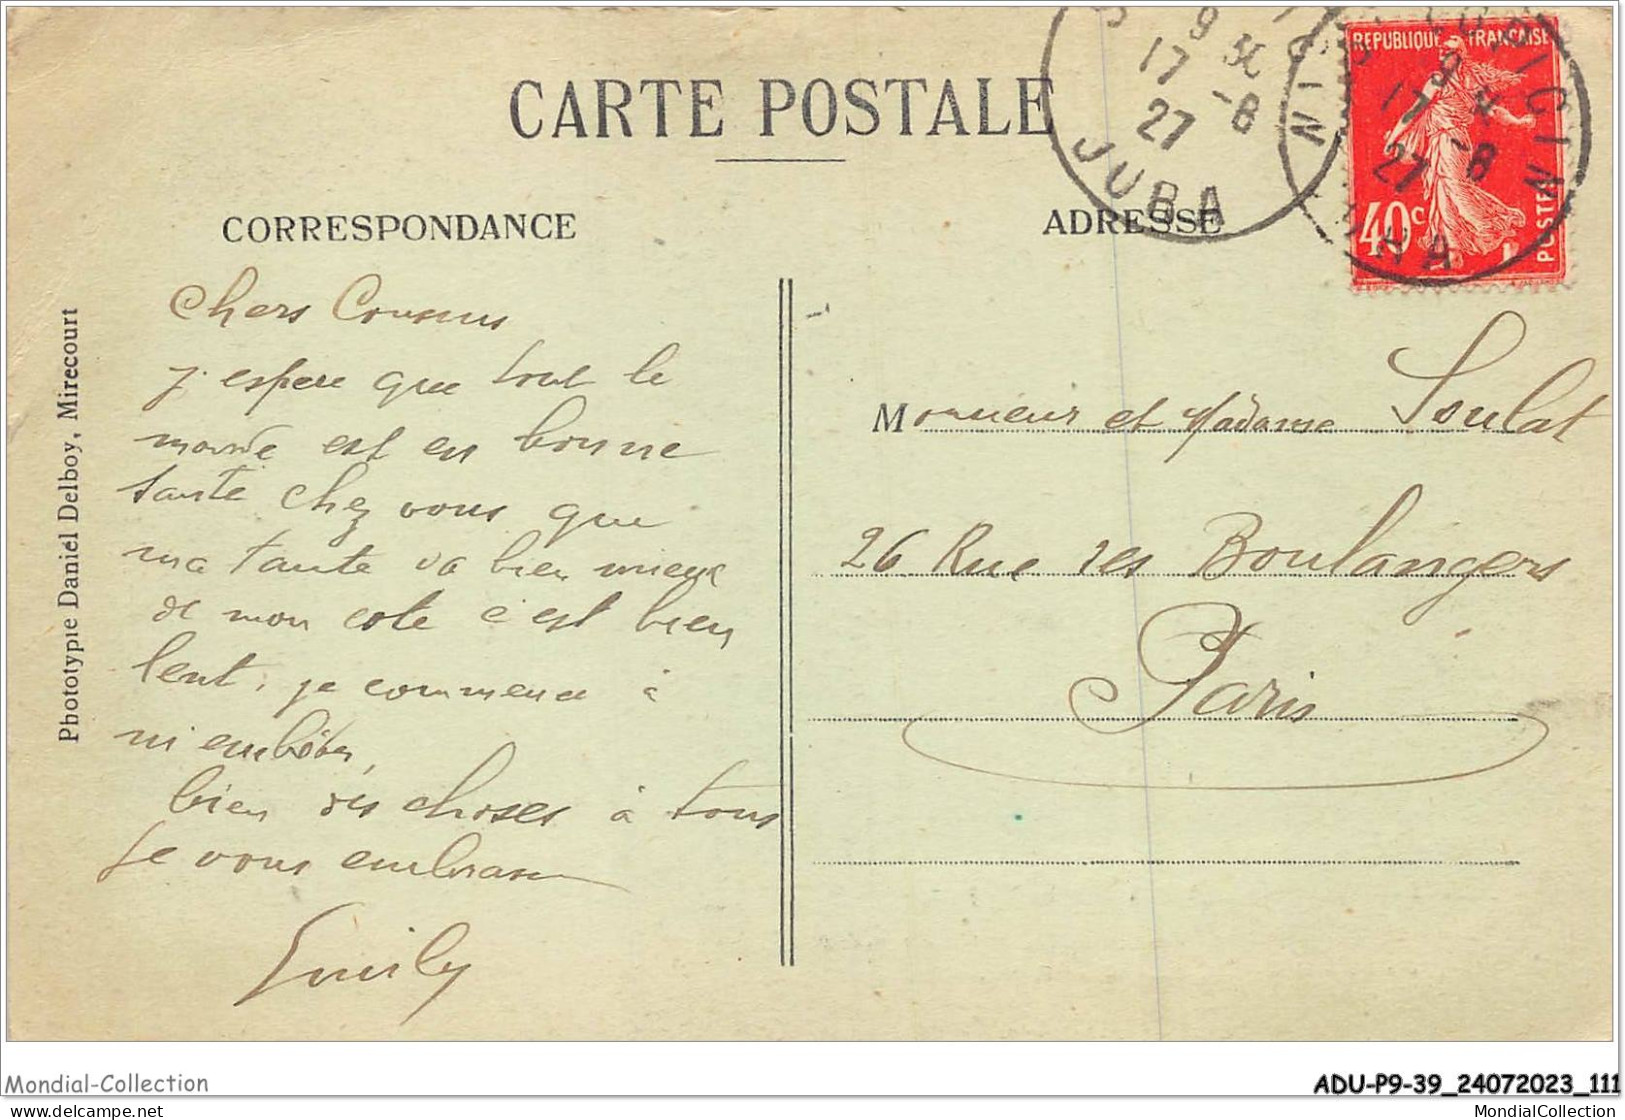 CARTE POSTALE
CORRESPONDANCE
ADRESSE
REPUBLIQUE FRANÇAISE
40c
POSTES
9 30
17 -8
27
JURA
17 -8
27
JURA
Phototypie Daniel Delboy, Mirecourt
Chers Cousins
j espere que tout le
monde est en bonne
santé chez vous que
ma tante va bien mieux
de mon cote c'est bien
lent, je commence à
m embêter,
bien des choses à tous
Je vous embrasse
Monsieur et Madame Soulat
26 Rue des Boulangers
Paris
Mondial-Collection
ADU-P9-39_24072023_111
www.delcampe.net
MondialCollection